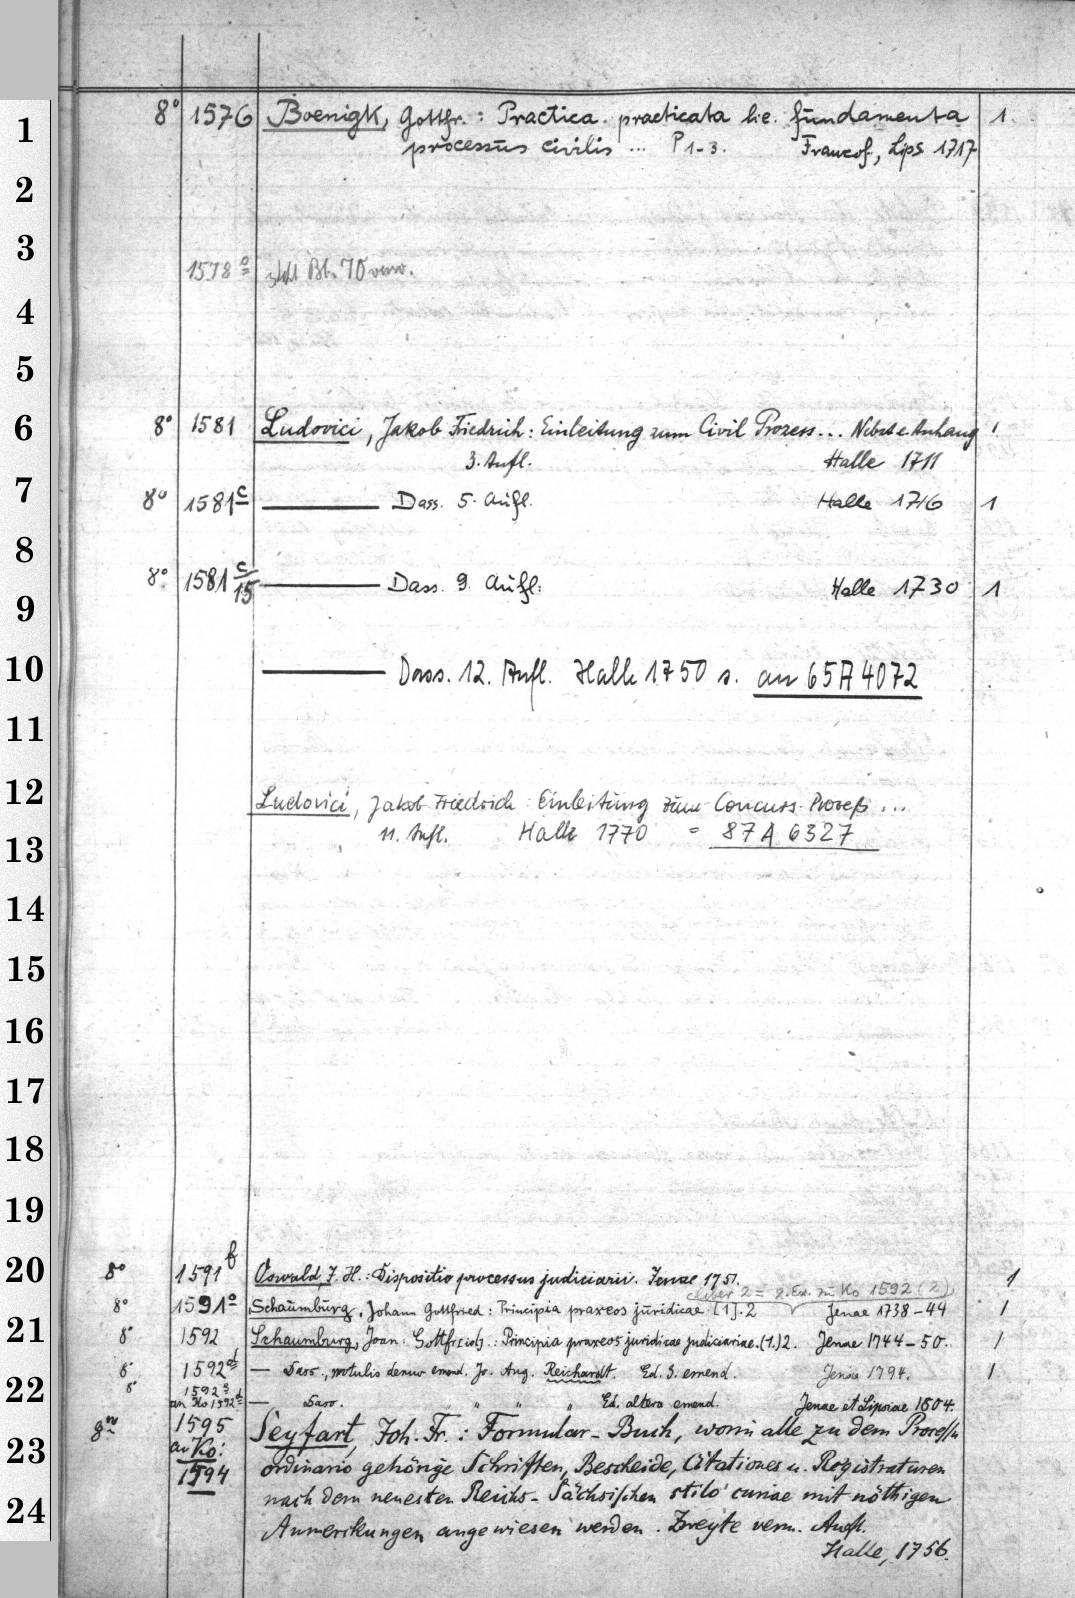 1 8° 1576 Boenigk, Gottfr.: Practica practicata h.e. fundamenta 1.
processus civilis ... P 1-3. Francof., Lips 1717
2
3
1578° Bl. 70 verw.
4
5
6 8° 1581 Ludovici, Jakob Friedrich: Einleitung zum Civil Prozess... Nebst e. Anhang 1
3. Aufl. Halle 1711
7 8° 1581c ——— Dass. 5. Aufl. Halle 1716 1
8
8° 1581 c/15 ——— Dass. 9. Aufl. Halle 1730 1
9
10 ——— Dass. 12. Aufl. Halle 1750 s. an 65A4072
11
12 Ludovici, Jakob Friedrich: Einleitung zum Concurs-Proceß ...
11. Aufl. Halle 1770 = 87A6327
13
14
15
16
17
18
19
20 8° 1591f Oswald, J. H.: Dispositio processus judiciarii. Jenae 1751. 1
(liber 2 = 2. Ex. zu Ko 1592 (2))
8° 1591° Schaumburg, Johann Gottfried: Principia praxeos juridicae [1].2 Jenae 1738-44 1
21 8° 1592 Schaumburg, Joan. Gottfried.: Principia praxeos juridicae judiciariae.(1.)2. Jenae 1744-50. 1
8° 1592d — Dass., notulis denuo emend. Jo. Aug. Reichardt. Ed. 3. emend. Jenae 1794. 1
22 8° 1592
an Ko 1592d — Dass. " " " Ed. altera emend. Jenae et Lipsiae 1804.
8° 1595 Seyfart, Joh. Fr.: Formular-Buch, worin alle zu dem Processu
23 an Ko: 1594 ordinario gehörige Schriften, Bescheide, Citationes u. Registraturen
nach dem neuesten Reichs-Sächsischen stilo curiae mit nöthigen
24 Anmerkungen angewiesen werden. Zweyte verm. Aufl.
Halle, 1756.